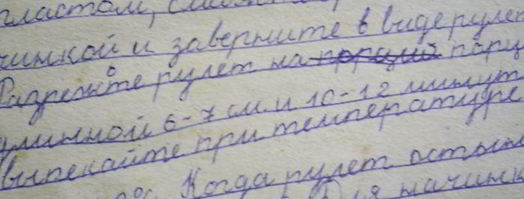 пластом,
чинкой и заверните в виде руле
Разрежьте рулет на порций порц
длинной 6-7 см и 10-12 минут
выпекайте при температуре
Когда рулет остын
Для начинк